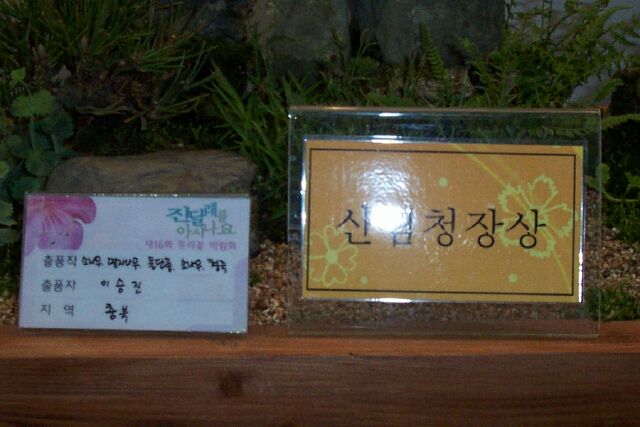 진달래를
아시나요
제16회 우리꽃 박람회
출품작 소나무
출품자 이승진
지역 충북
산림청장상